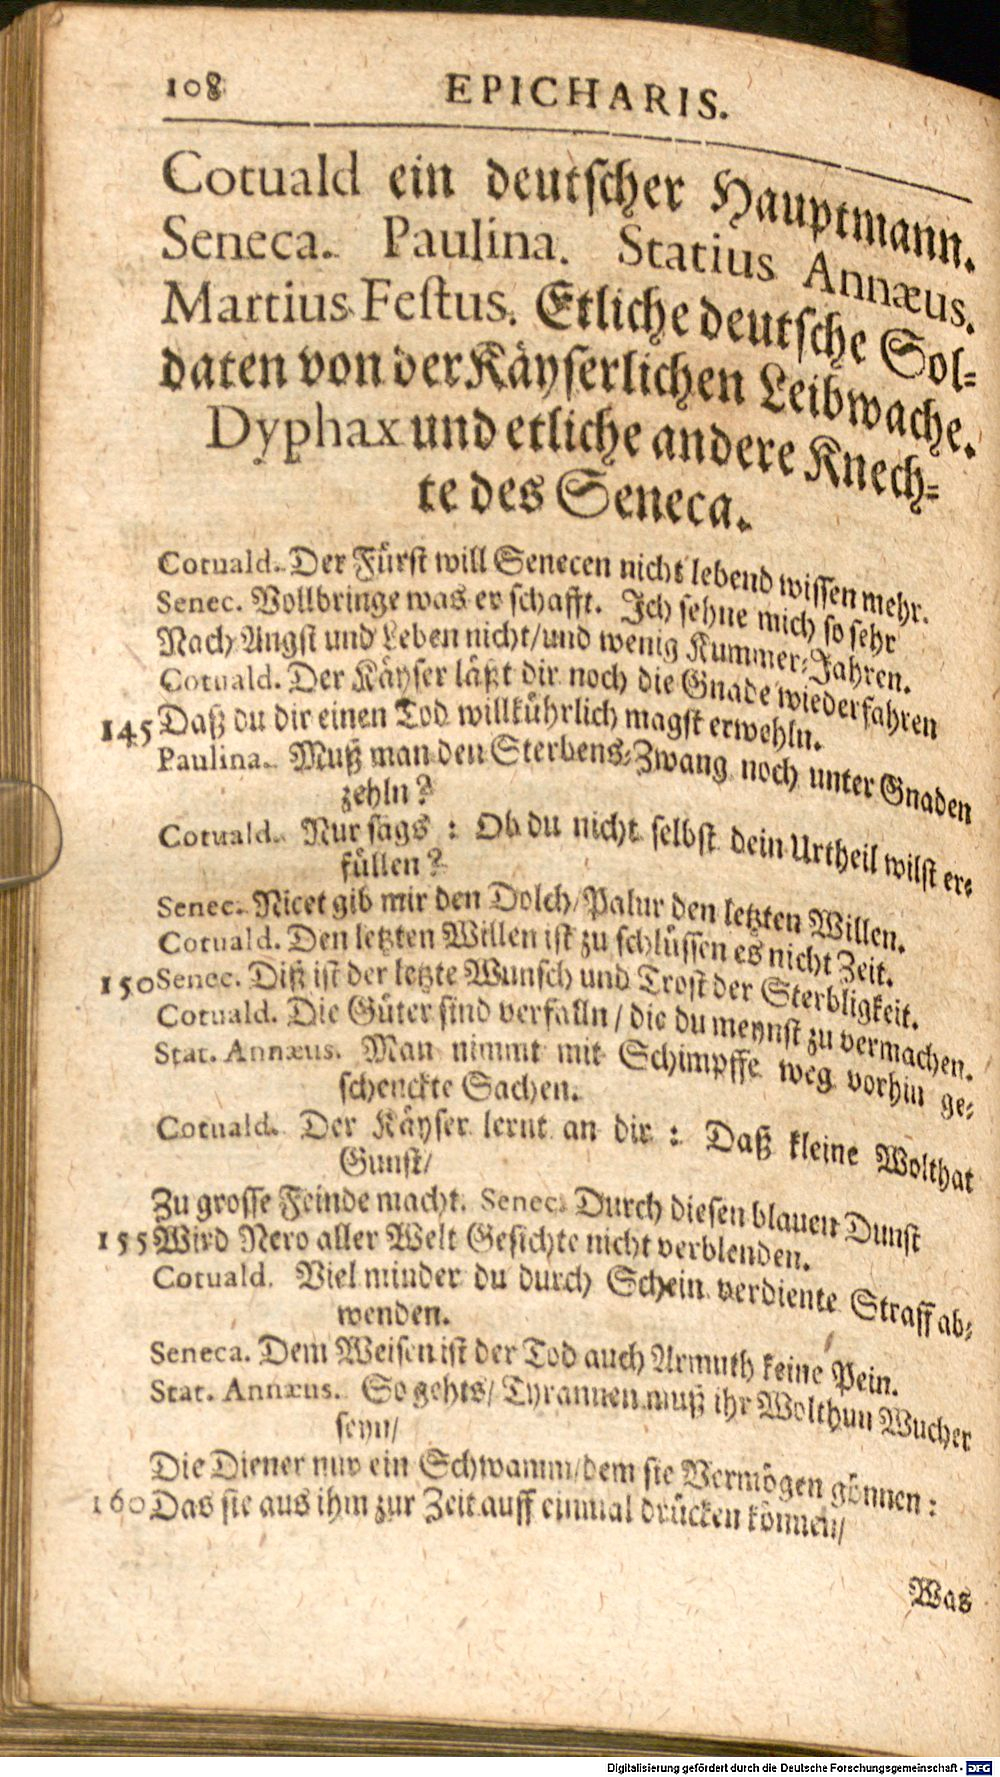 108 EPICHARIS.
Cotuald ein deutſcher Hauptmann.
Seneca. Paulina. Statius Annæus.
Martius Feſtus. Etliche deutſche Sol-
daten von der Käyſerlichen Leibwache.
Dyphax und etliche andere Knech-
te des Seneca.
Cotuald. Der Fürſt will Senecen nicht lebend wiſſen mehr.
Senec. Vollbringe was er ſchafft. Ich ſehne mich ſo ſehr
Nach Angſt und Leben nicht/und wenig Kummer-Jahren.
Cotuald. Der Käyſer läſzt dir noch die Gnade wiederfahren
145 Daß du dir einen Tod willkührlich magſt erwehln.
Paulina. Muß man den Sterbens-Zwang noch unter Gnaden
zehln?
Cotuald. Nur ſags : Ob du nicht ſelbſt dein Urtheil wilſt er-
füllen?
Senec. Nicet gib mir den Dolch/Palur den letzten Willen.
Cotuald. Den letzten Willen iſt zu ſchlüſſen es nicht Zeit.
150 Senec. Diß iſt der letzte Wunſch und Troſt der Sterbligkeit.
Cotuald. Die Güter ſind verfalln / die du meynſt zu vermachen.
Stat. Annæus. Man nimmt mit Schimpffe weg vorhin ge-
ſchenckte Sachen.
Cotuald. Der Käyſer lernt an dir : Daß kleine Wolthat
Gunſt/
Zu groſſe Feinde macht. Senec. Durch dieſen blauen Dunſt
155 Wird Nero aller Welt Geſichte nicht verblenden.
Cotuald. Viel minder du durch Schein verdiente Straff ab-
wenden.
Seneca. Dem Weiſen iſt der Tod auch Armuth keine Pein.
Stat. Annæus. So gehts/ Tyrannen muß ihr Wolthun Wucher
ſeyn/
Die Diener nur ein Schwamm/dem ſie Vermögen gönnen :
160 Das ſie aus ihm zur Zeit auff einmal drücken können/
Was
Digitalisierung gefördert durch die Deutsche Forschungsgemeinschaft - DFG